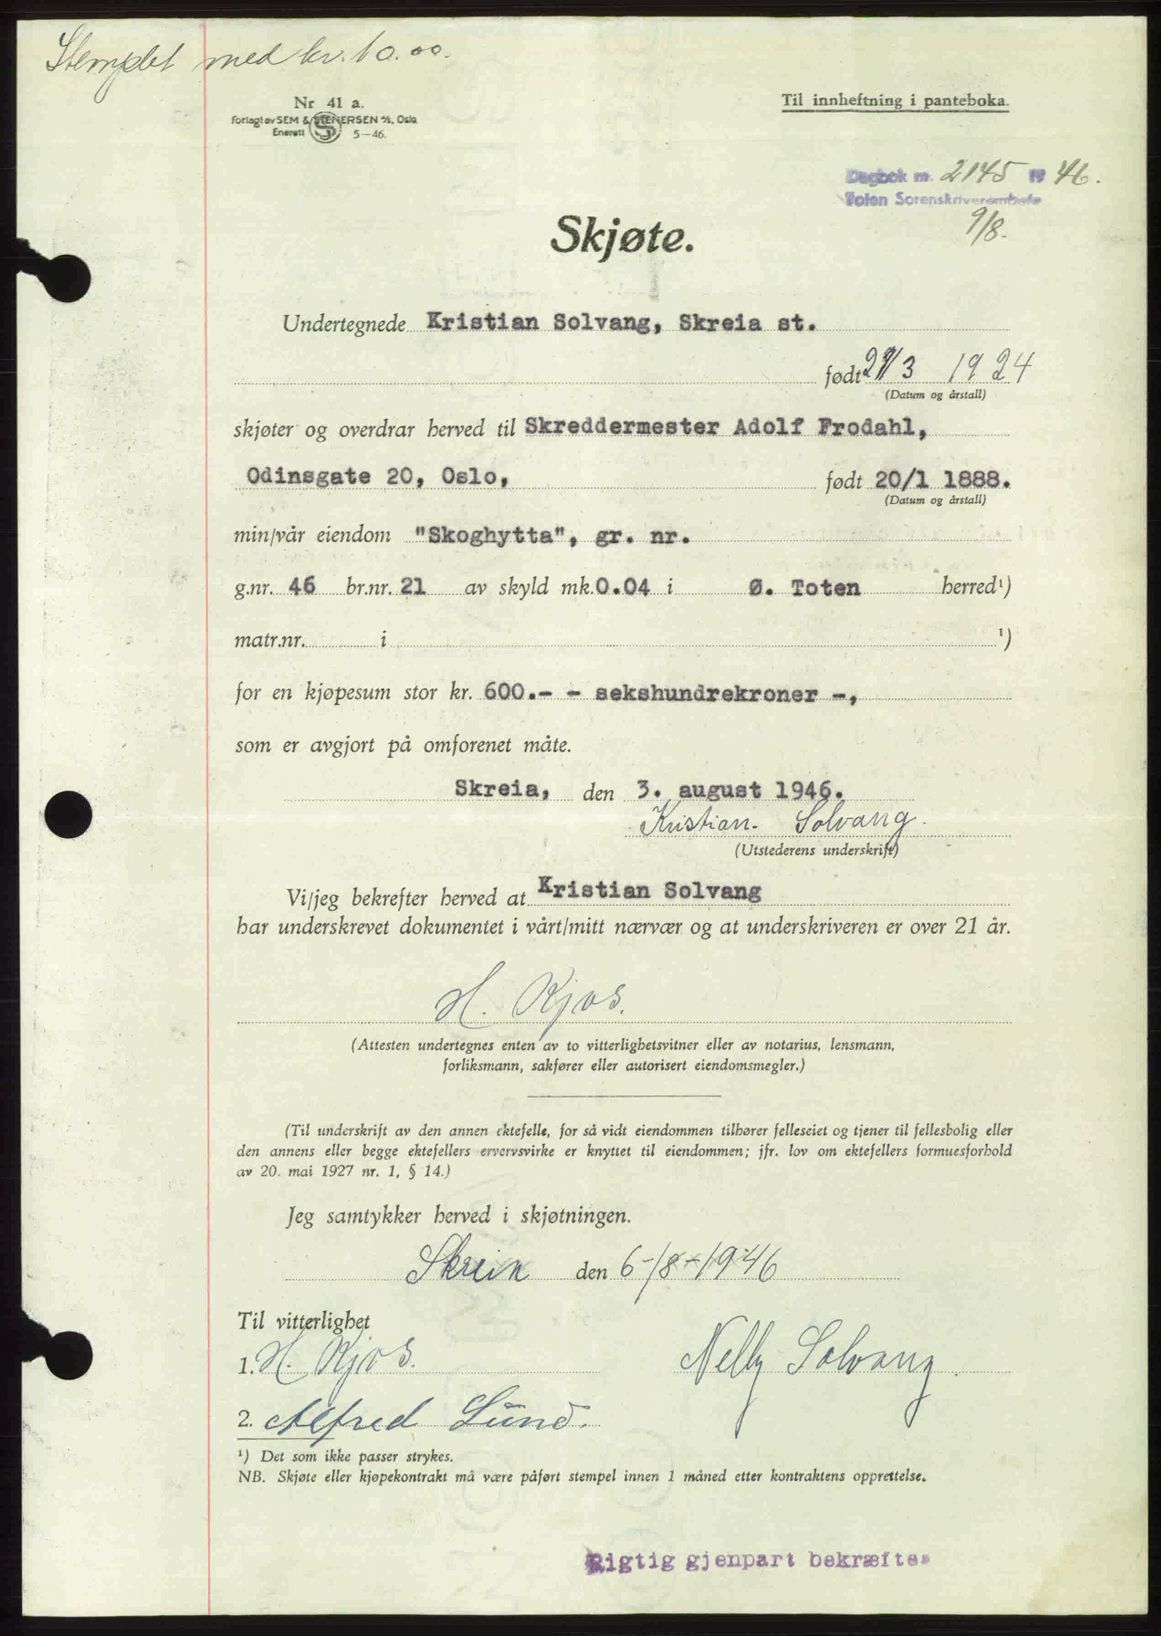 Stemplet med kr. 10.00.
Nr 41 a.
Til innheftning i panteboka.
forlagt av SEM & STENERSEN A/S, Oslo
Enerett 5—46.
Dagbok nr. 2145 19 46.
Toten Sorenskriverembete
9/8.
Skjøte.
Undertegnede Kristian Solvang, Skreia st.
født 1924
(Datum og årstall)
skjøter og overdrar herved til Skreddermester Adolf Frodahl,
Odinsgate 20, Oslo, født 20/1 1888.
(Datum og årstall)
min/vår eiendom "Skoghytta", gr. nr.
g.nr. 46 br.nr. 21 av skyld mk. 0.04 i Ø. Toten herred¹)
matr.nr. i ¹)
for en kjøpesum stor kr. 600.- - sekshundrekroner -,
som er avgjort på omforenet måte.
Skreia, den 3. august 1946.
Kristian. Solvang.
(Utstederens underskrift)
Vi/jeg bekrefter herved at Kristian Solvang
har underskrevet dokumentet i vårt/mitt nærvær og at underskriveren er over 21 år.
H. Kjos.
(Attesten undertegnes enten av to vitterlighetsvitner eller av notarius, lensmann,
forliksmann, sakfører eller autorisert eiendomsmegler.)
(Til underskrift av den annen ektefelle, for så vidt eiendommen tilhører felleseiet og tjener til fellesbolig eller
den annens eller begge ektefellers ervervsvirke er knyttet til eiendommen; jfr. lov om ektefellers formuesforhold
av 20. mai 1927 nr. 1, § 14.)
Jeg samtykker herved i skjøtningen.
Skreia den 6-/8-1946
Til vitterlighet
1. H. Kjos. Nelly Solvang.
2. Alfred Lund.
¹) Det som ikke passer strykes.
NB. Skjøte eller kjøpekontrakt må være påført stempel innen 1 måned etter kontraktens opprettelse.
Rigtig gjenpart bekræftes